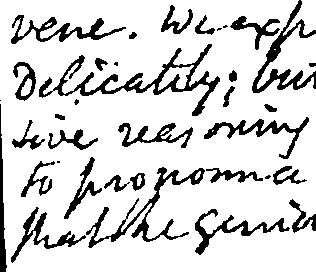 vene. We exp
Delicately; but
sive reasoning
to pronounce
that the genius